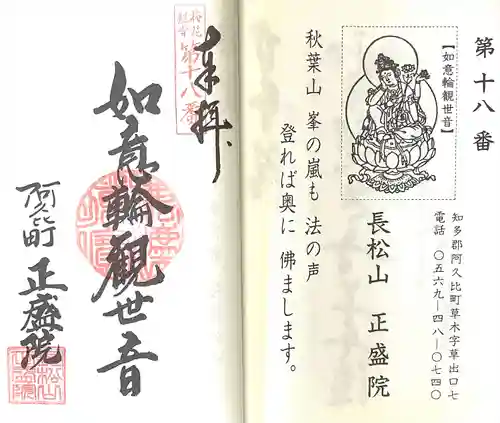 第十八番
【如意輪観世音】
知多郡阿久比町草木字草出口七
電話 〇五六九ー四八ー〇七四〇
長松山 正盛院
秋葉山 峯の嵐も 法の声
登れば奥に 佛まします。
奉拝、
第十八番
如意輪観世音
阿久比町 正盛院